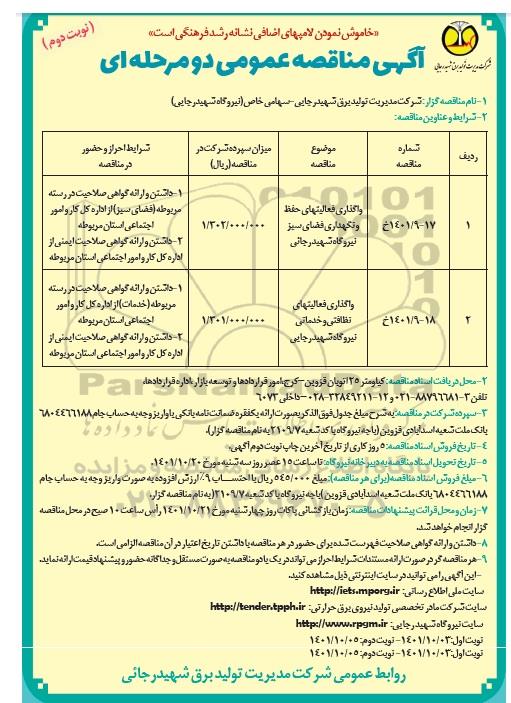 «خاموش نمودن لامپهای اضافی نشانه رشد فرهنگی است»
(نوبت دوم)
شرکت مدیریت تولید برق شهید رجایی
آگهی مناقصه عمومی دو مرحله ای
۱- نام مناقصه گزار: شرکت مدیریت تولید برق شهید رجایی-سهامی خاص (نیروگاه شهید رجایی)
۲- شرایط و عناوین مناقصه:
ردیف
شماره مناقصه
موضوع مناقصه
میزان سپرده شرکت در مناقصه (ریال)
شرایط احراز و حضور در مناقصه
۱
۱۴۰۱/۹-۱۷خ
واگذاری فعالیتهای حفظ
و نگهداری فضای سبز
نیروگاه شهید رجائی
۱/۳۰۲/۰۰۰/۰۰۰
۱-داشتن و ارائه گواهی صلاحیت در رسته
مربوطه (فضای سبز) از اداره کل کار و امور
اجتماعی استان مربوطه
۲-داشتن و ارائه گواهی صلاحیت ایمنی از
اداره کل کار و امور اجتماعی استان مربوطه
۲
۱۴۰۱/۹-۱۸خ
واگذاری فعالیتهای
نظافتی و خدماتی
نیروگاه شهید رجایی
۱/۳۰۱/۰۰۰/۰۰۰
۱-داشتن و ارائه گواهی صلاحیت در رسته
مربوطه (خدمات) از اداره کل کار و امور
اجتماعی استان مربوطه
۲-داشتن و ارائه گواهی صلاحیت ایمنی از
اداره کل کار و امور اجتماعی استان مربوطه
۲- محل دریافت اسناد مناقصه: کیلومتر ۲۵ اتوبان قزوین-کرج، امور قراردادها و توسعه بازار، اداره قراردادها،
تلفن ۳-۸۸۷۹۶۶۸۱-۰۲۱ و ۱۲-۳۲۸۴۶۲۱۱-۰۲۸ داخلی ۶۰۷۳
۳- سپرده شرکت در مناقصه: به شرح مبلغ جدول فوق الذکر بصورت ارائه یکفقره ضمانت نامه بانکی یا واریز وجه به حساب جام ۶۸۰۴۴۶۶۱۸۸
بانک ملت شعبه اسدآبادی قزوین (باجه نیروگاه با کد شعبه ۲۱۰۹/۷ به نام مناقصه گزار).
۴- تاریخ فروش اسناد مناقصه: ۵ روز کاری از تاریخ آخرین چاپ نوبت دوم آگهی.
۵- تاریخ تحویل اسناد مناقصه به دبیرخانه نیروگاه: تا ساعت ۱۵ عصر روز سه شنبه مورخ ۱۴۰۱/۱۰/۲۰.
۶- مبلغ فروش اسناد مناقصه (برای هر مناقصه): مبلغ ۵۴۵/۰۰۰ ریال با احتساب ۹٪ ارزش افزوده به صورت واریز وجه به حساب جام
۶۸۰۴۴۶۶۱۸۸ بانک ملت شعبه اسدآبادی قزوین (باجه نیروگاه با کد شعبه ۲۱۰۹/۷) به نام مناقصه گزار.
۷- زمان و محل قرائت پیشنهادات مناقصه: زمان بازگشائی پاکات روز چهارشنبه مورخ ۱۴۰۱/۱۰/۲۱ رأس ساعت ۱۰ صبح در محل مناقصه
گزار انجام خواهد شد.
۸- داشتن و ارائه گواهی صلاحیت فهرست شده برای حضور در هر مناقصه با داشتن تاریخ اعتبار در آن مناقصه الزامی است.
۹- هر مناقصه گر در صورت ارائه مستندات شرایط احراز می تواند در یک یا دو مناقصه به صورت مستقل و جداگانه حضور و پیشنهاد قیمت ارائه نماید.
- این آگهی را می توانید در سایت اینترنتی ذیل مشاهده کنید.
سایت ملی اطلاع رسانی: http://iets.mporg.ir
سایت شرکت مادر تخصصی تولید نیروی برق حرارتی: http://tender.tpph.ir
سایت نیروگاه شهید رجایی: http://www.rpgm.ir
نوبت اول: ۱۴۰۱/۱۰/۰۳- نوبت دوم: ۱۴۰۱/۱۰/۰۵
نوبت اول: ۱۴۰۱/۱۰/۰۳- نوبت دوم: ۱۴۰۱/۱۰/۰۵
روابط عمومی شرکت مدیریت تولید برق شهید رجائی